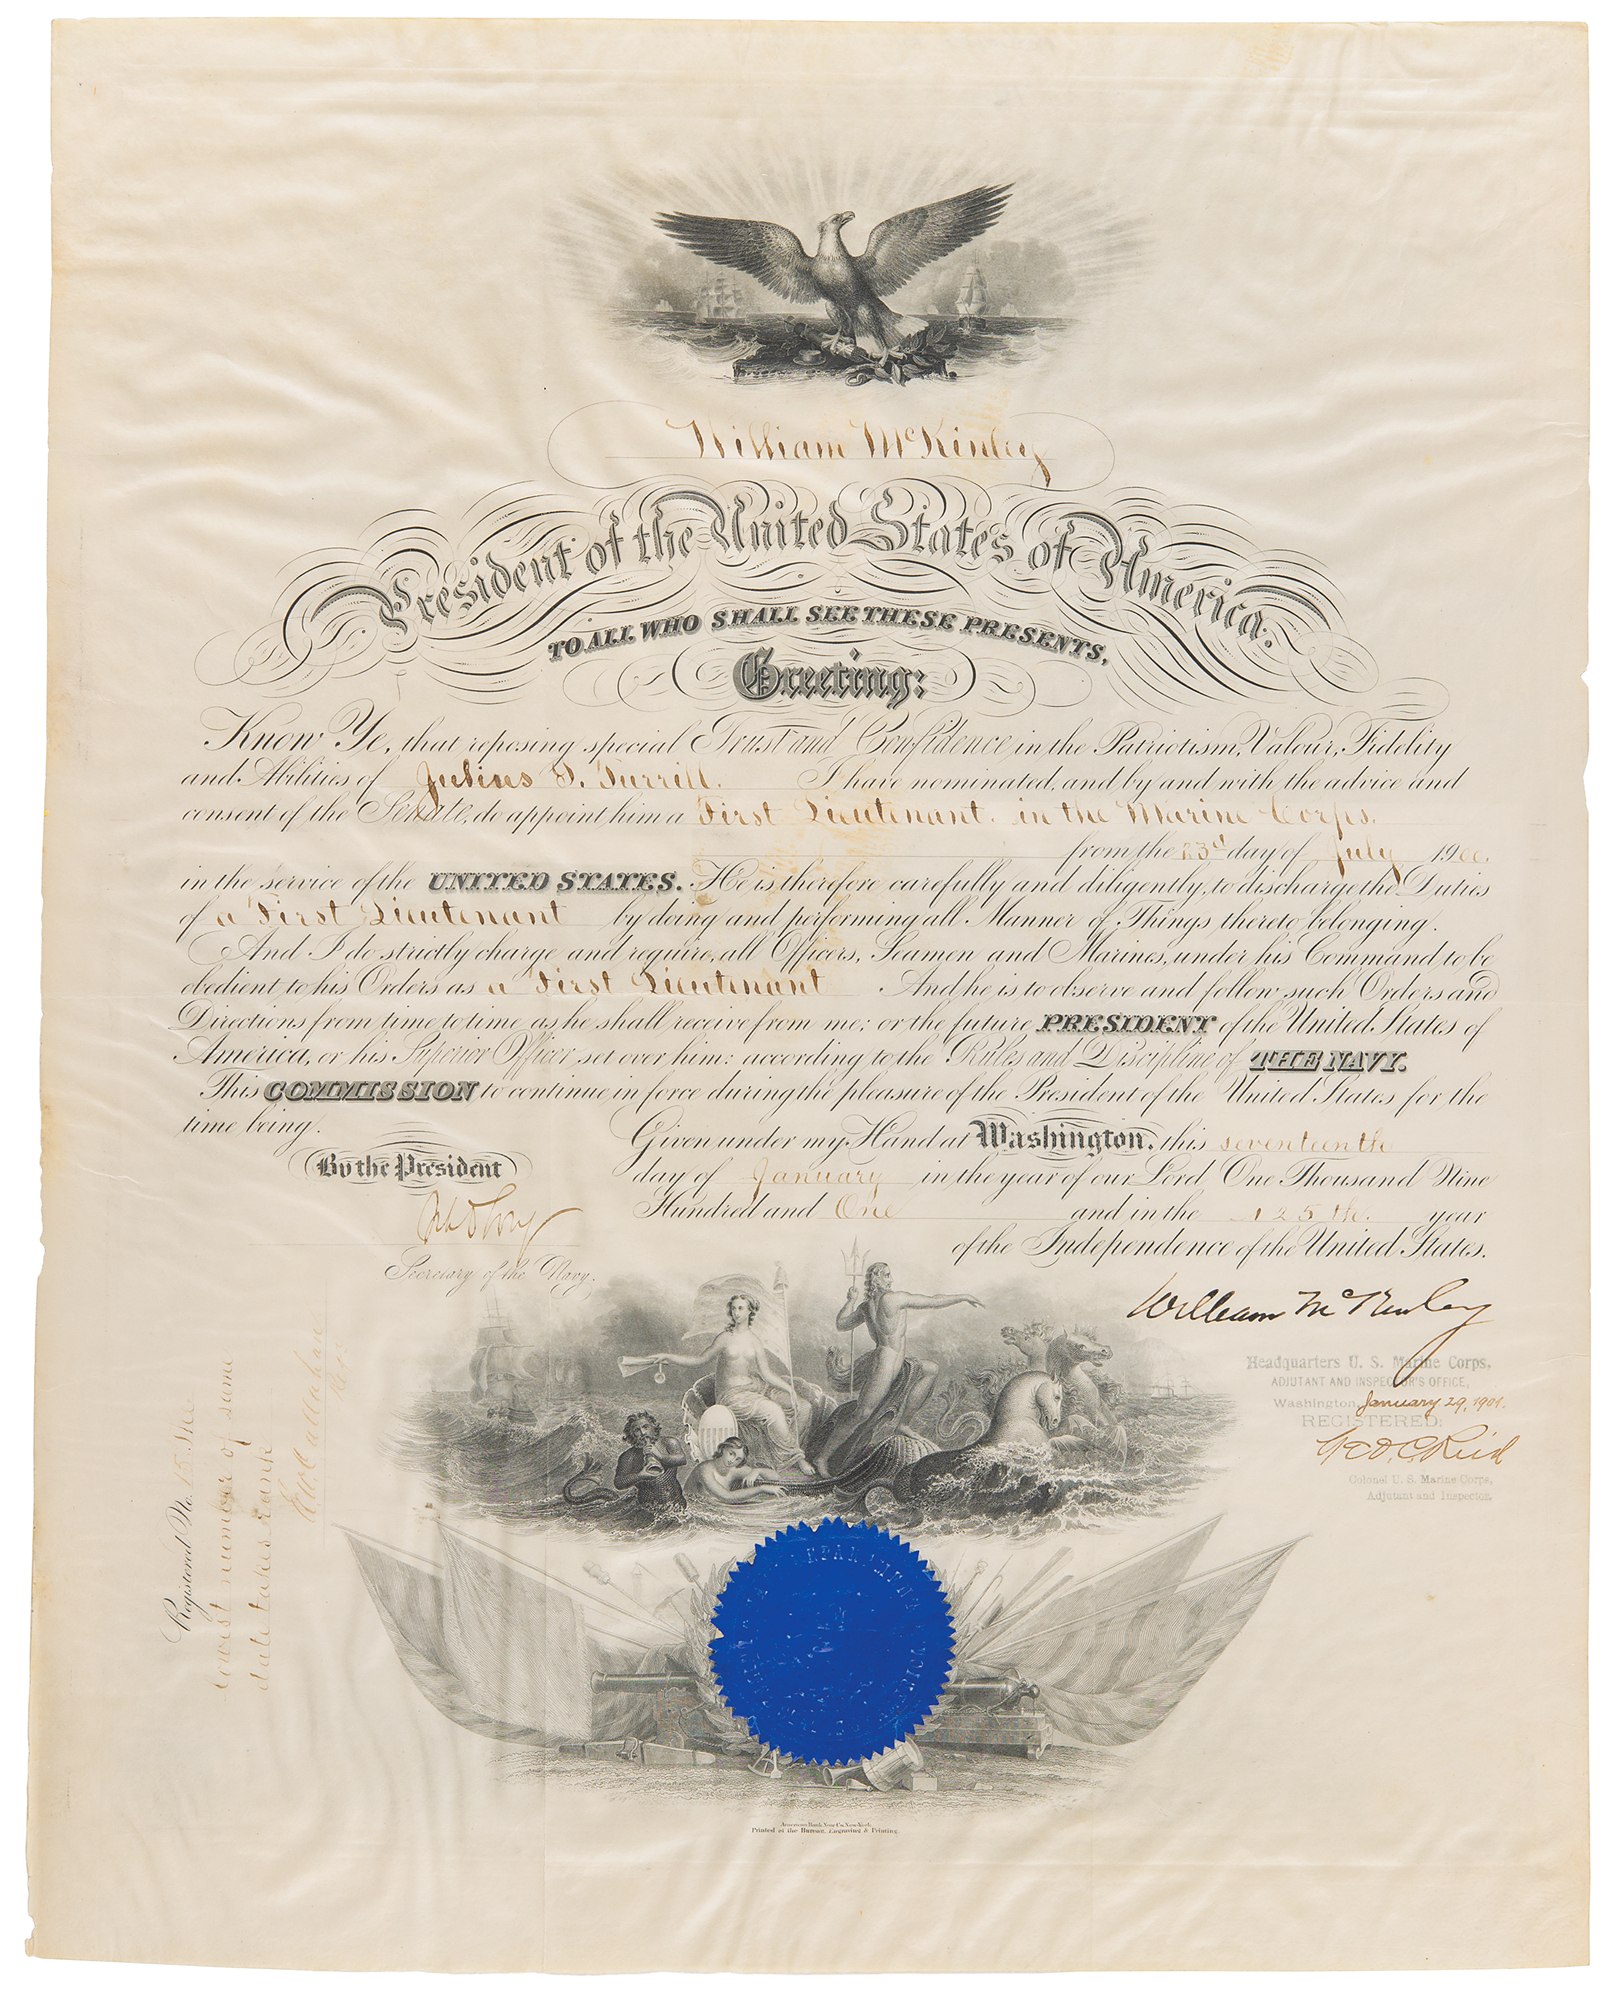 William McKinley
President of the United States of America.
TO ALL WHO SHALL SEE THESE PRESENTS,
Greeting:
Know Ye, that reposing special Trust and Confidence in the Patriotism, Valour, Fidelity
and Abilities of Julius S. Turrill. I have nominated, and by and with the advice and
consent of the Senate, do appoint him a First Lieutenant in the Marine Corps.
from the 23d day of July 1900.
in the service of the UNITED STATES. He is therefore carefully and diligently, to discharge the Duties
of a First Lieutenant by doing and performing all Manner of Things thereto belonging.
And I do strictly charge and require, all Officers, Seamen and Marines, under his Command to be
obedient to his Orders as a First Lieutenant. And he is to observe and follow such Orders and
Directions from time to time as he shall receive from me; or the future PRESIDENT of the United States of
America, or his Superior Officer set over him: according to the Rules and Discipline of THE NAVY.
This COMMISSION to continue in force during the pleasure of the President of the United States for the
time being.
Given under my Hand at Washington, this seventeenth
day of January in the year of our Lord One Thousand Nine
Hundred and One and in the 125th. year
of the Independence of the United States.
By the President
John D. Long
Secretary of the Navy.
William McKinley
Headquarters U. S. Marine Corps,
ADJUTANT AND INSPECTOR'S OFFICE,
Washington, January 29, 1901.
REGISTERED:
Geo. C. Reid
Colonel U. S. Marine Corps,
Adjutant and Inspector.
Registered No.
Lowest number of same
date takes rank
American Bank Note Co. New York.
Printed at the Bureau, Engraving & Printing.